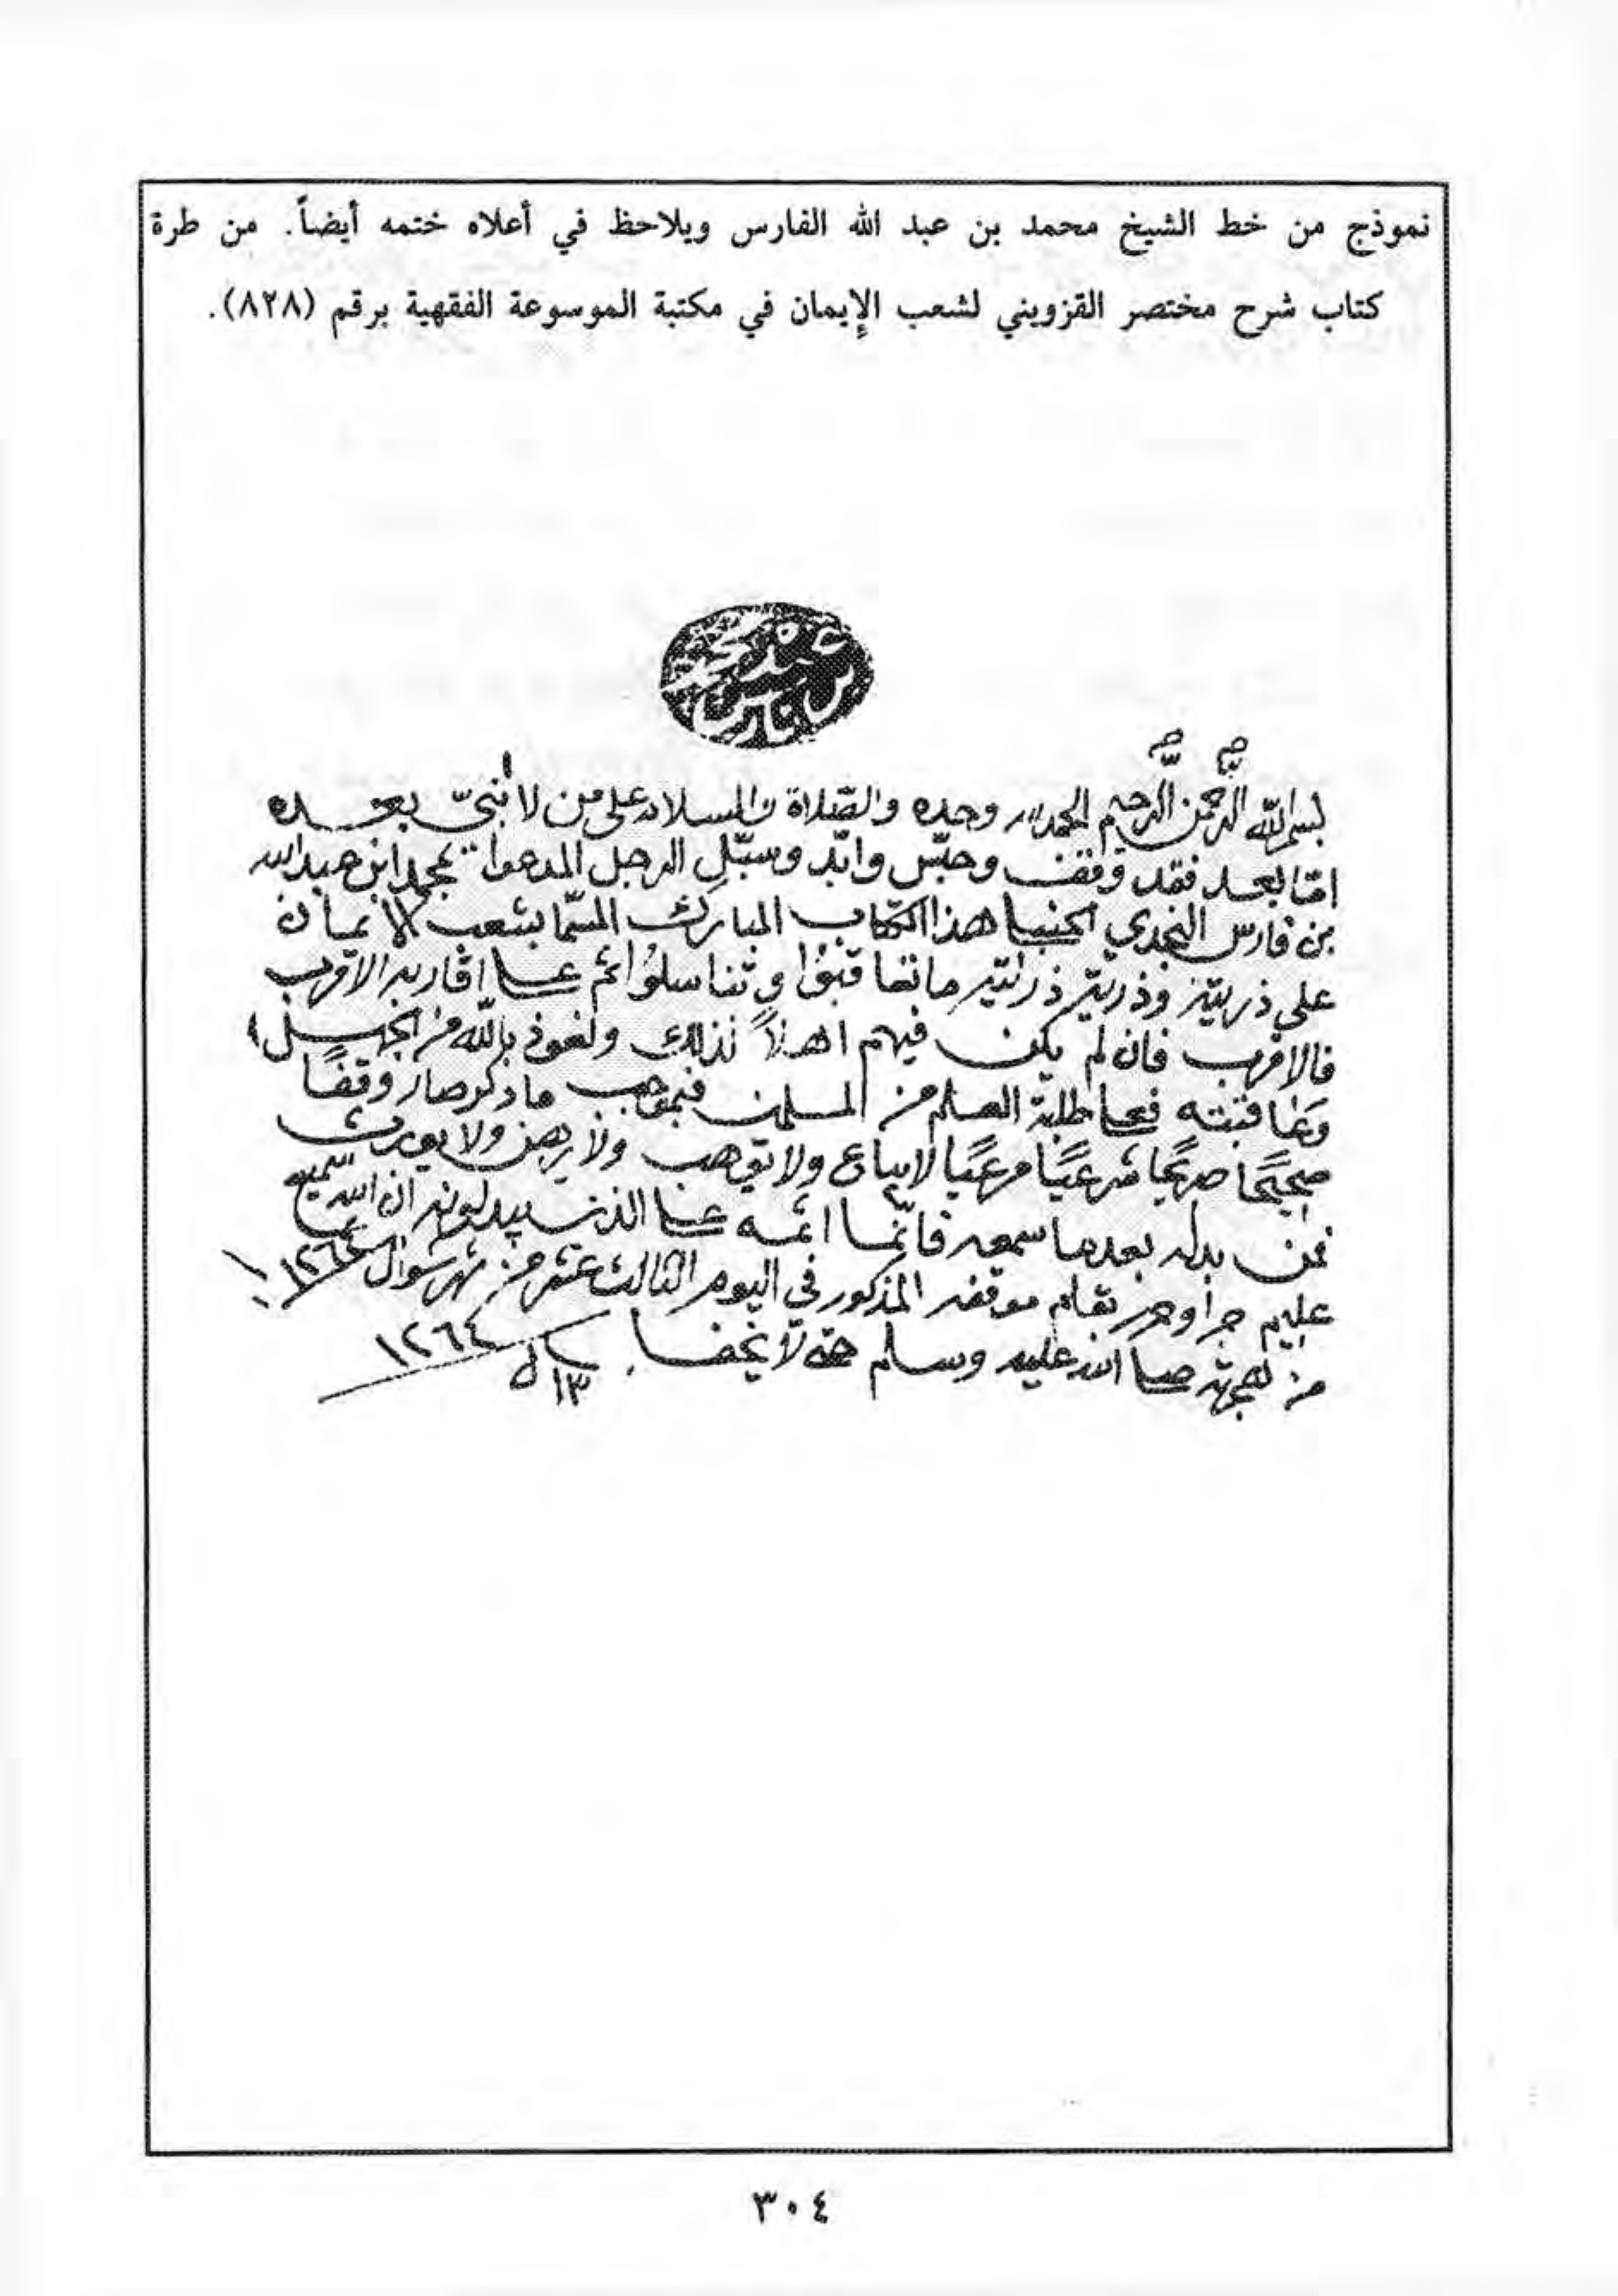 نموذج من خط الشيخ محمد بن عبد الله الفارس ويلاحظ في أعلاه ختمه أيضاً. من طرة
كتاب شرح مختصر القزويني لشعب الإيمان في مكتبة الموسوعة الفقهية برقم (٨٢٨).
عبده محمد بن فارس
بسم الله الرحمن الرحيم الحمد لله وحده والصلاة والسلام على من لا نبيّ بعده
امّا بعد فقد وقف وحبّس وابّد وسبّل الرجل المدعوا بمحمد ابن عبد الله
بن فارس النجدي الحنبلي هذا الكتاب المبارك المسمّا بشعب الايمان
على ذريته وذرية ذريته ما تعاقبوا وتناسلوا ثم على اقاربه الاقرب
فالاقرب فان لم يكن فيهم اهلاً لذلك ونعوذ بالله من الجهل
وعاقبته فعلى طلبة العلم من المسلمين فبموجب ما ذكر صار وقفًا
صحيحًا صريحًا شرعيًا مرعيًا لا يباع ولا يوهب ولا يرهن ولا يورث
فمن بدله بعدما سمعه فانّما اثمه على الذين يبدلونه ان الله سميع
عليم جرا وحرر تمام موقفه المذكور في اليوم الثالث عشر من شهر شوال ١٢٦٤
من هجرته صلى الله عليه وسلم حتى لا يخفا ١٣ ل ١٢٦٤
٣٠٤